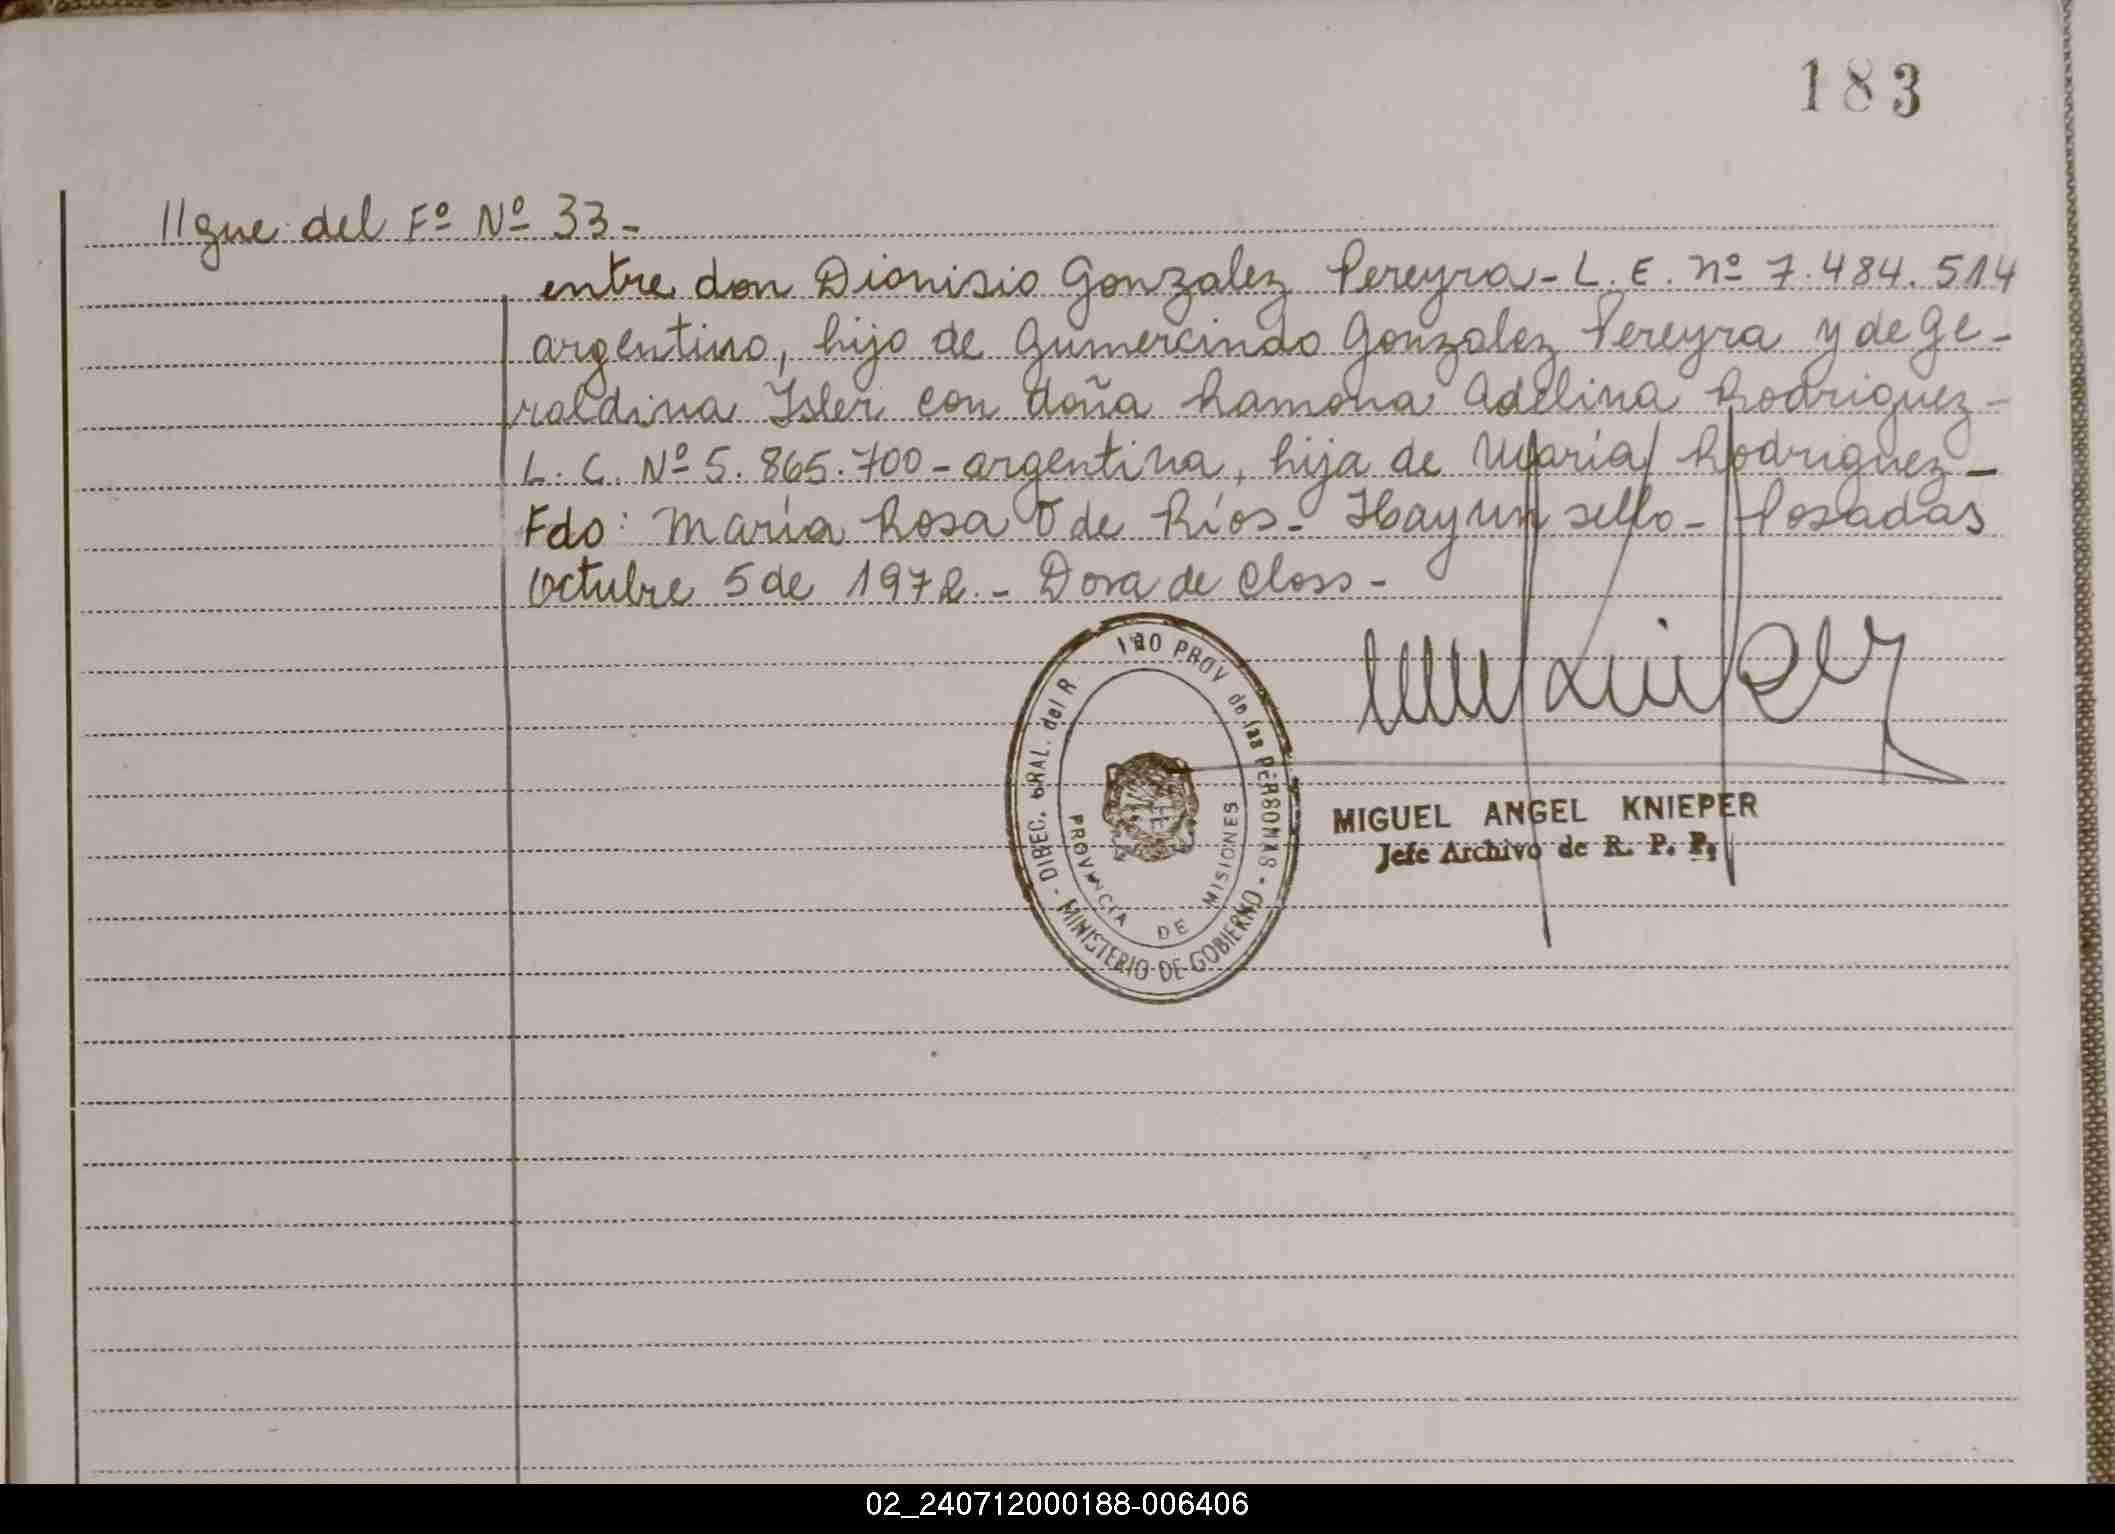 183
//gue del Fº Nº 33-
entre don Dionisio Gonzalez Pereyra - L. E. nº 7.484.514
argentino, hijo de Gumercindo Gonzalez Pereyra y de Ge-
raldina Isler con doña Ramona Adelina Rodriguez -
L. C. Nº 5.865.700 - argentina, hija de María Rodriguez -
Fdo: María Rosa O de Ríos - Hay un sello - Posadas
Octubre 5 de 1972. - Dora de Closs -
DIREC. GRAL. del R. PROV de las PERSONAS
- MINISTERIO DE GOBIERNO -
PROVINCIA DE MISIONES
MIGUEL ANGEL KNIEPER
Jefe Archivo de R. P. P.
02_240712000188-006406